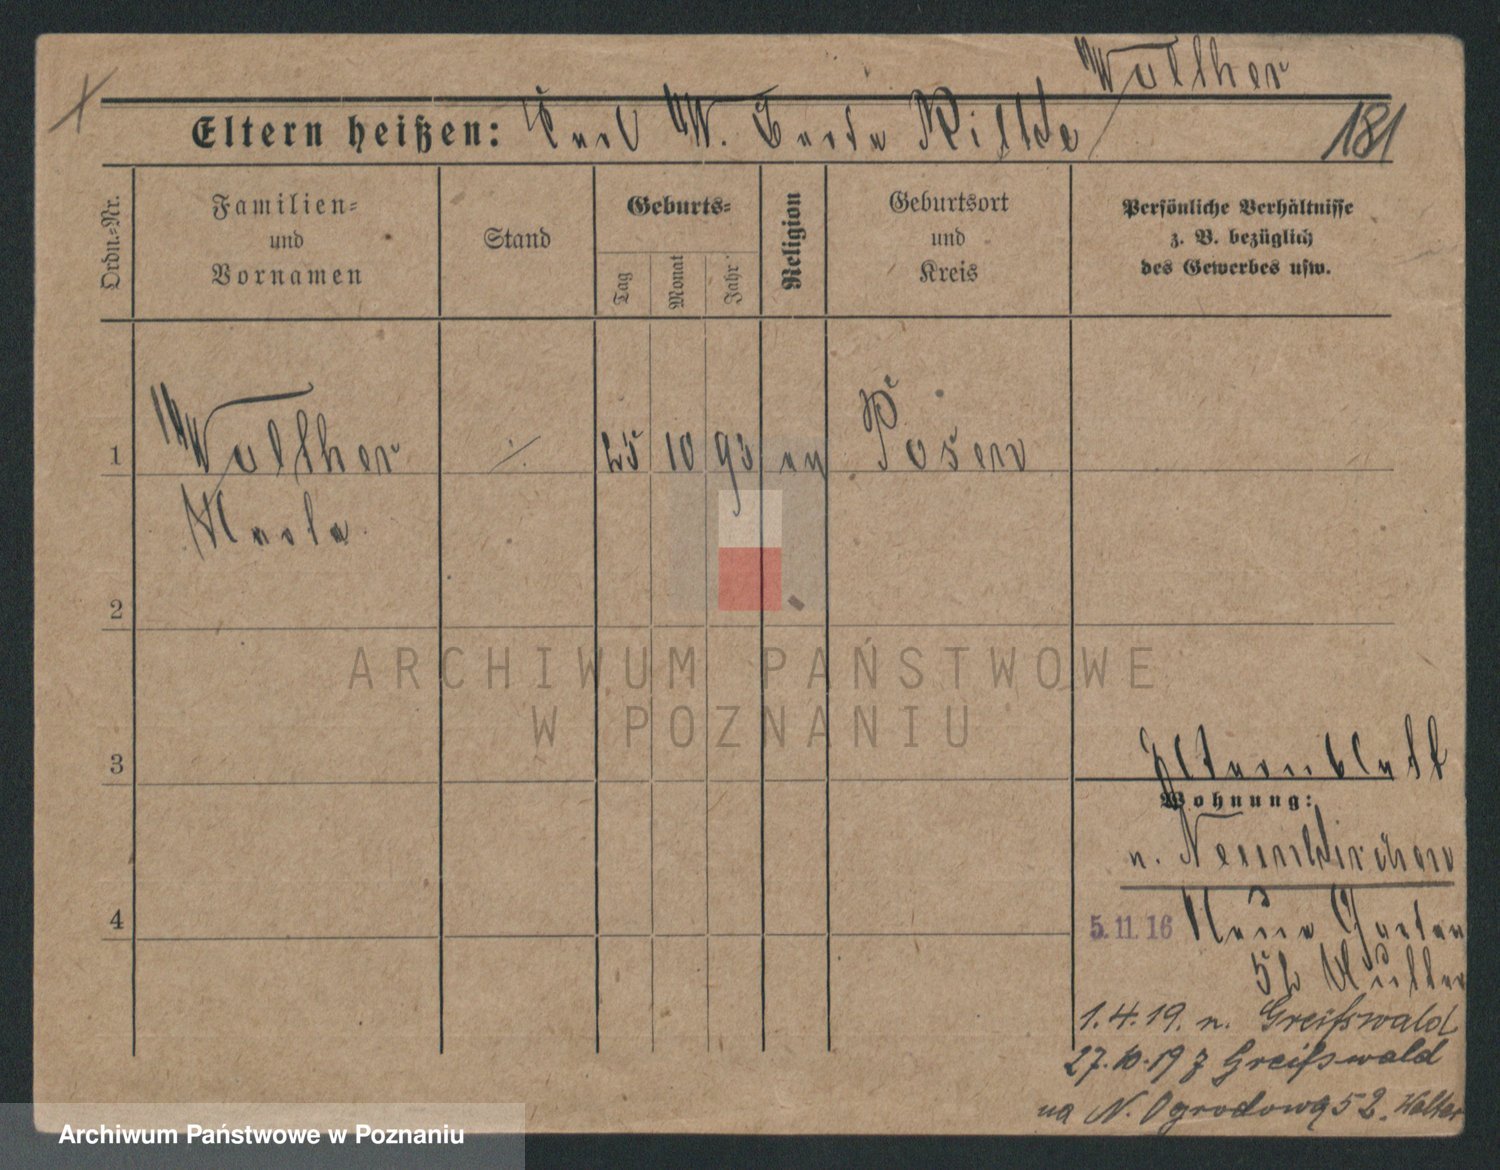 Walther
Eltern heißen: Carl W. Berta Rilke
181
Ordn.=Nr.
Familien=
und
Vornamen
Stand
Geburts=
Tag
Monat
Jahr
Religion
Geburtsort
und
Kreis
Persönliche Verhältnisse
z. B. bezüglich
des Gewerbes usw.
1
Walther
./.
25
10
93
ev
Posen
2
ARCHIWUM PAŃSTWOWE
W POZNANIU
3
Elternblatt
Wohnung:
n. Neunkirchen
4
5.11.16 Neue Garten
52
1.4.19. n. Greifswald
27.10.19 z Greifswald
na N. Ogrodową 52.
Archiwum Państwowe w Poznaniu